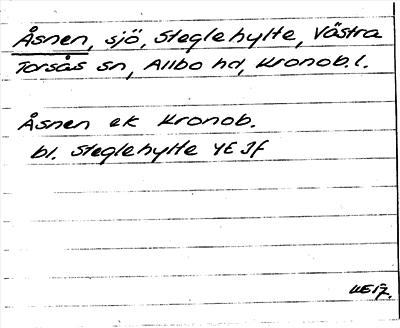 Åsnen, sjö, Steglehylte, Västra
Torsås sn, Allbo hd, Kronob.l.
Åsnen ek Kronob.
bl. Steglehylte 4E 3f